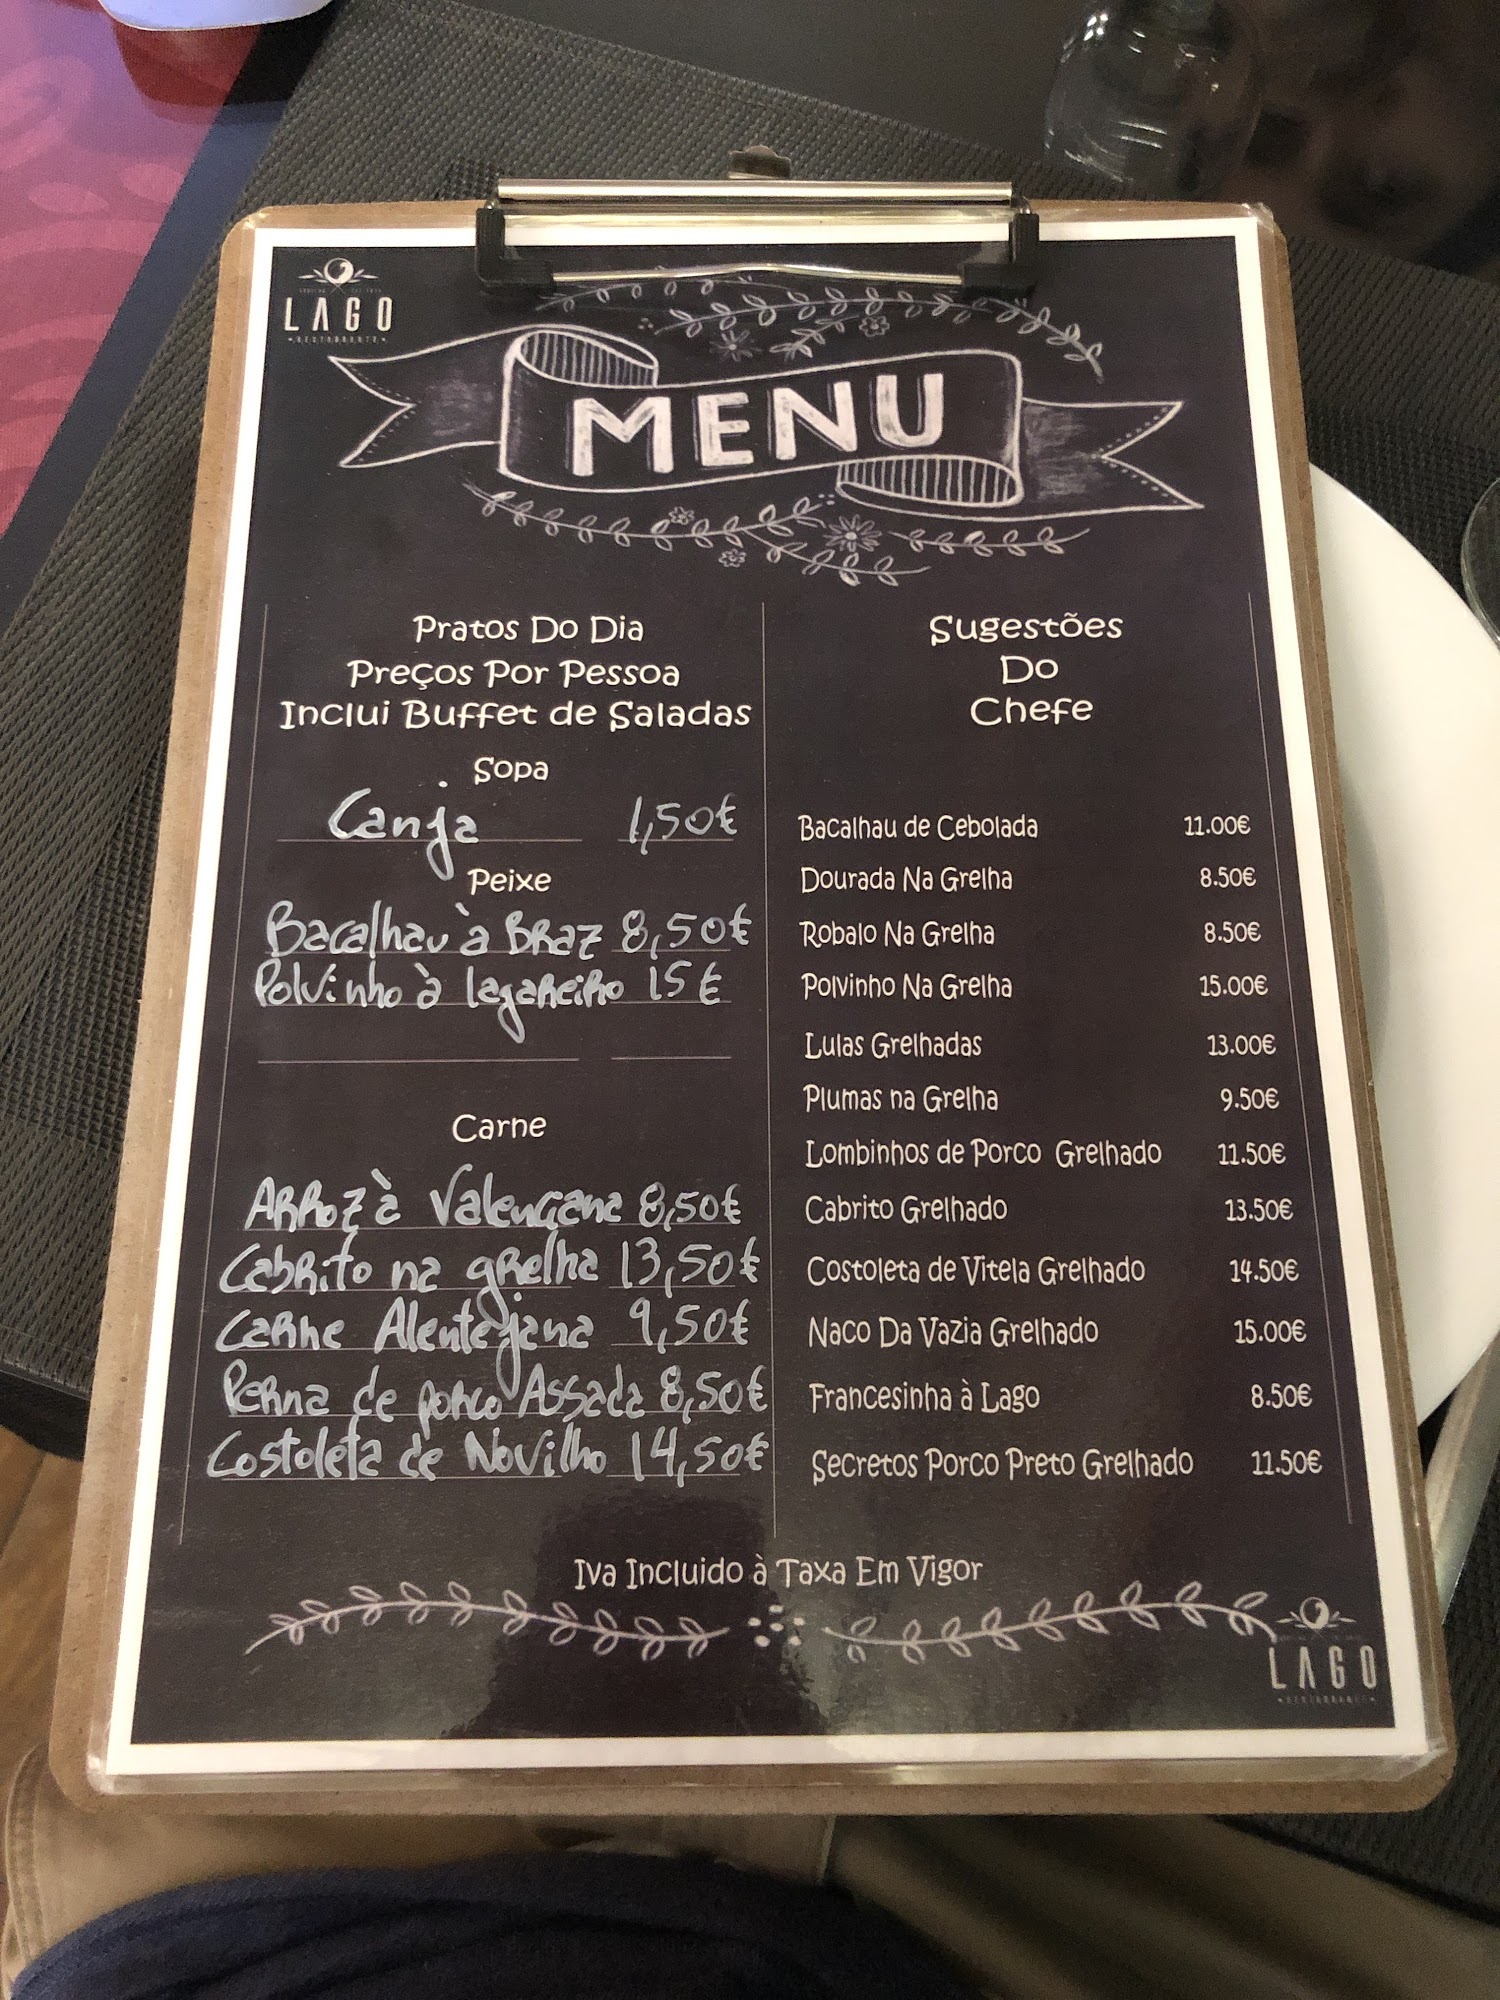 LAGO
RESTAURANTE
MENU
Pratos Do Dia
Preços Por Pessoa
Inclui Buffet de Saladas
Sopa
Canja 1,50€
Peixe
Bacalhau à BRaz 8,50€
Polvinho à lagareiro 15€
Carne
Arroz à Valençana 8,50€
Cabrito na grelha 13,50€
Carne Alentejana 9,50€
Perna de porco Assada 8,50€
Costoleta de Novilho 14,50€
Sugestões
Do
Chefe
Bacalhau de Cebolada 11.00€
Dourada Na Grelha 8.50€
Robalo Na Grelha 8.50€
Polvinho Na Grelha 15.00€
Lulas Grelhadas 13.00€
Plumas na Grelha 9.50€
Lombinhos de Porco Grelhado 11.50€
Cabrito Grelhado 13.50€
Costoleta de Vitela Grelhado 14.50€
Naco Da Vazia Grelhado 15.00€
Francesinha à Lago 8.50€
Secretos Porco Preto Grelhado 11.50€
Iva Incluido à Taxa Em Vigor
LAGO
RESTAURANTE